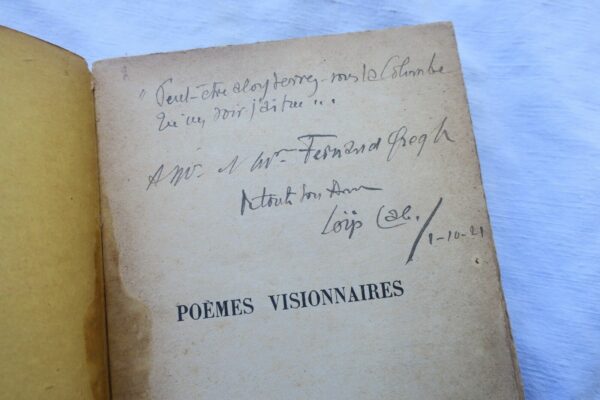 " Peut-être alors verrez-vous la Colombe
Qu'un soir j'ai tué...
A Mr. & Mme Fernand Gregh
Loïs Cab.
1-10-21
POÈMES VISIONNAIRES